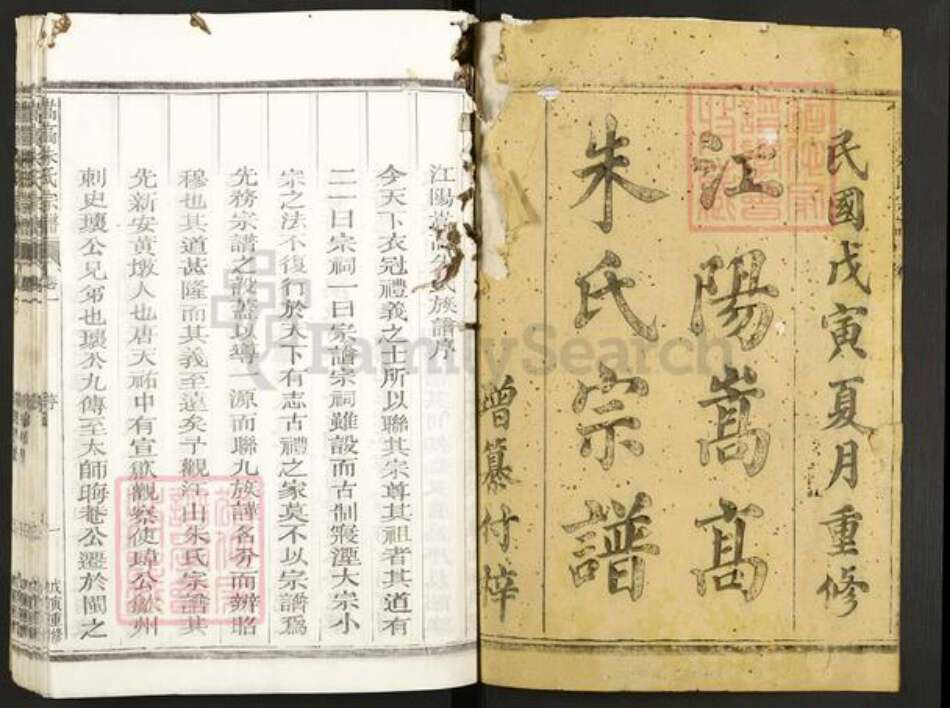 民國戊寅夏月重修
江陽嵩高
朱氏宗譜
增纂付梓
江陽嵩高朱氏族譜序
今天下衣冠禮義之士所以聯其宗尊其祖者其道有
二一曰宗祠一曰宗譜宗祠雖設而古制寖湮大宗小
宗之法不復行於天下有志古禮之家莫不以宗譜爲
先務宗譜之設蓋以導一源而聯九族譁名分而辨昭
穆也其道甚隆而其義至遠矣予觀江山朱氏宗譜其
先新安黃墩人也唐天祐中有宣歙觀察使瑋公歙州
刺史瓌公兄弟也瓌公九傳至太師晦菴公遷於閩之
嵩高朱氏宗譜
卷一
序
一
戊寅重修
FamilySearch